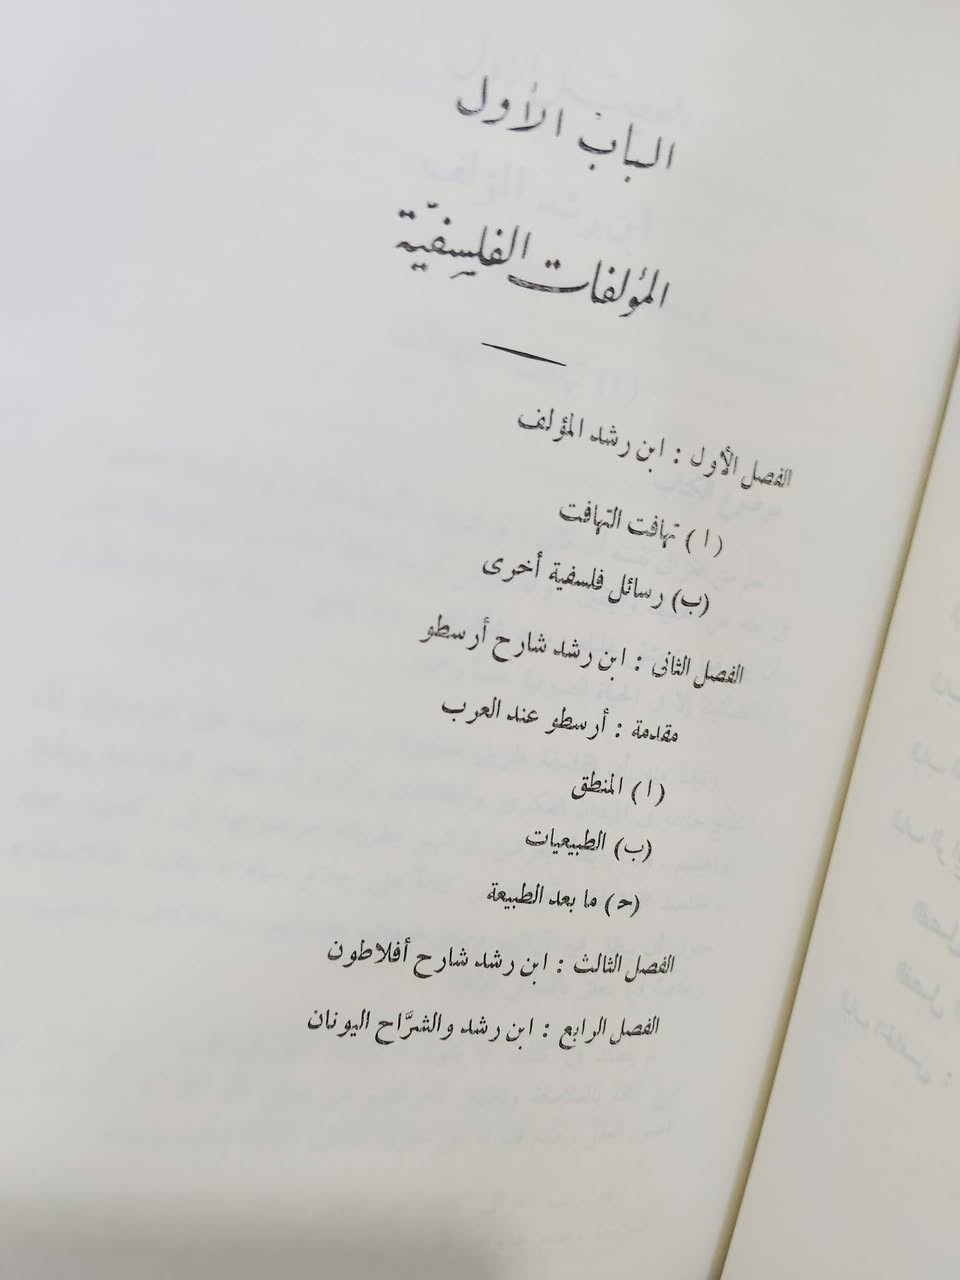 الباب الأول
المؤلفات الفلسفيّة
الفصل الأول : ابن رشد المؤلف
(ا) تهافت التهافت
(ب) رسائل فلسفية أخرى
الفصل الثانى : ابن رشد شارح أرسطو
مقدمة : أرسطو عند العرب
(ا) المنطق
(ب) الطبيعيات
(ح) ما بعد الطبيعة
الفصل الثالث : ابن رشد شارح أفلاطون
الفصل الرابع : ابن رشد والشرَّاح اليونان